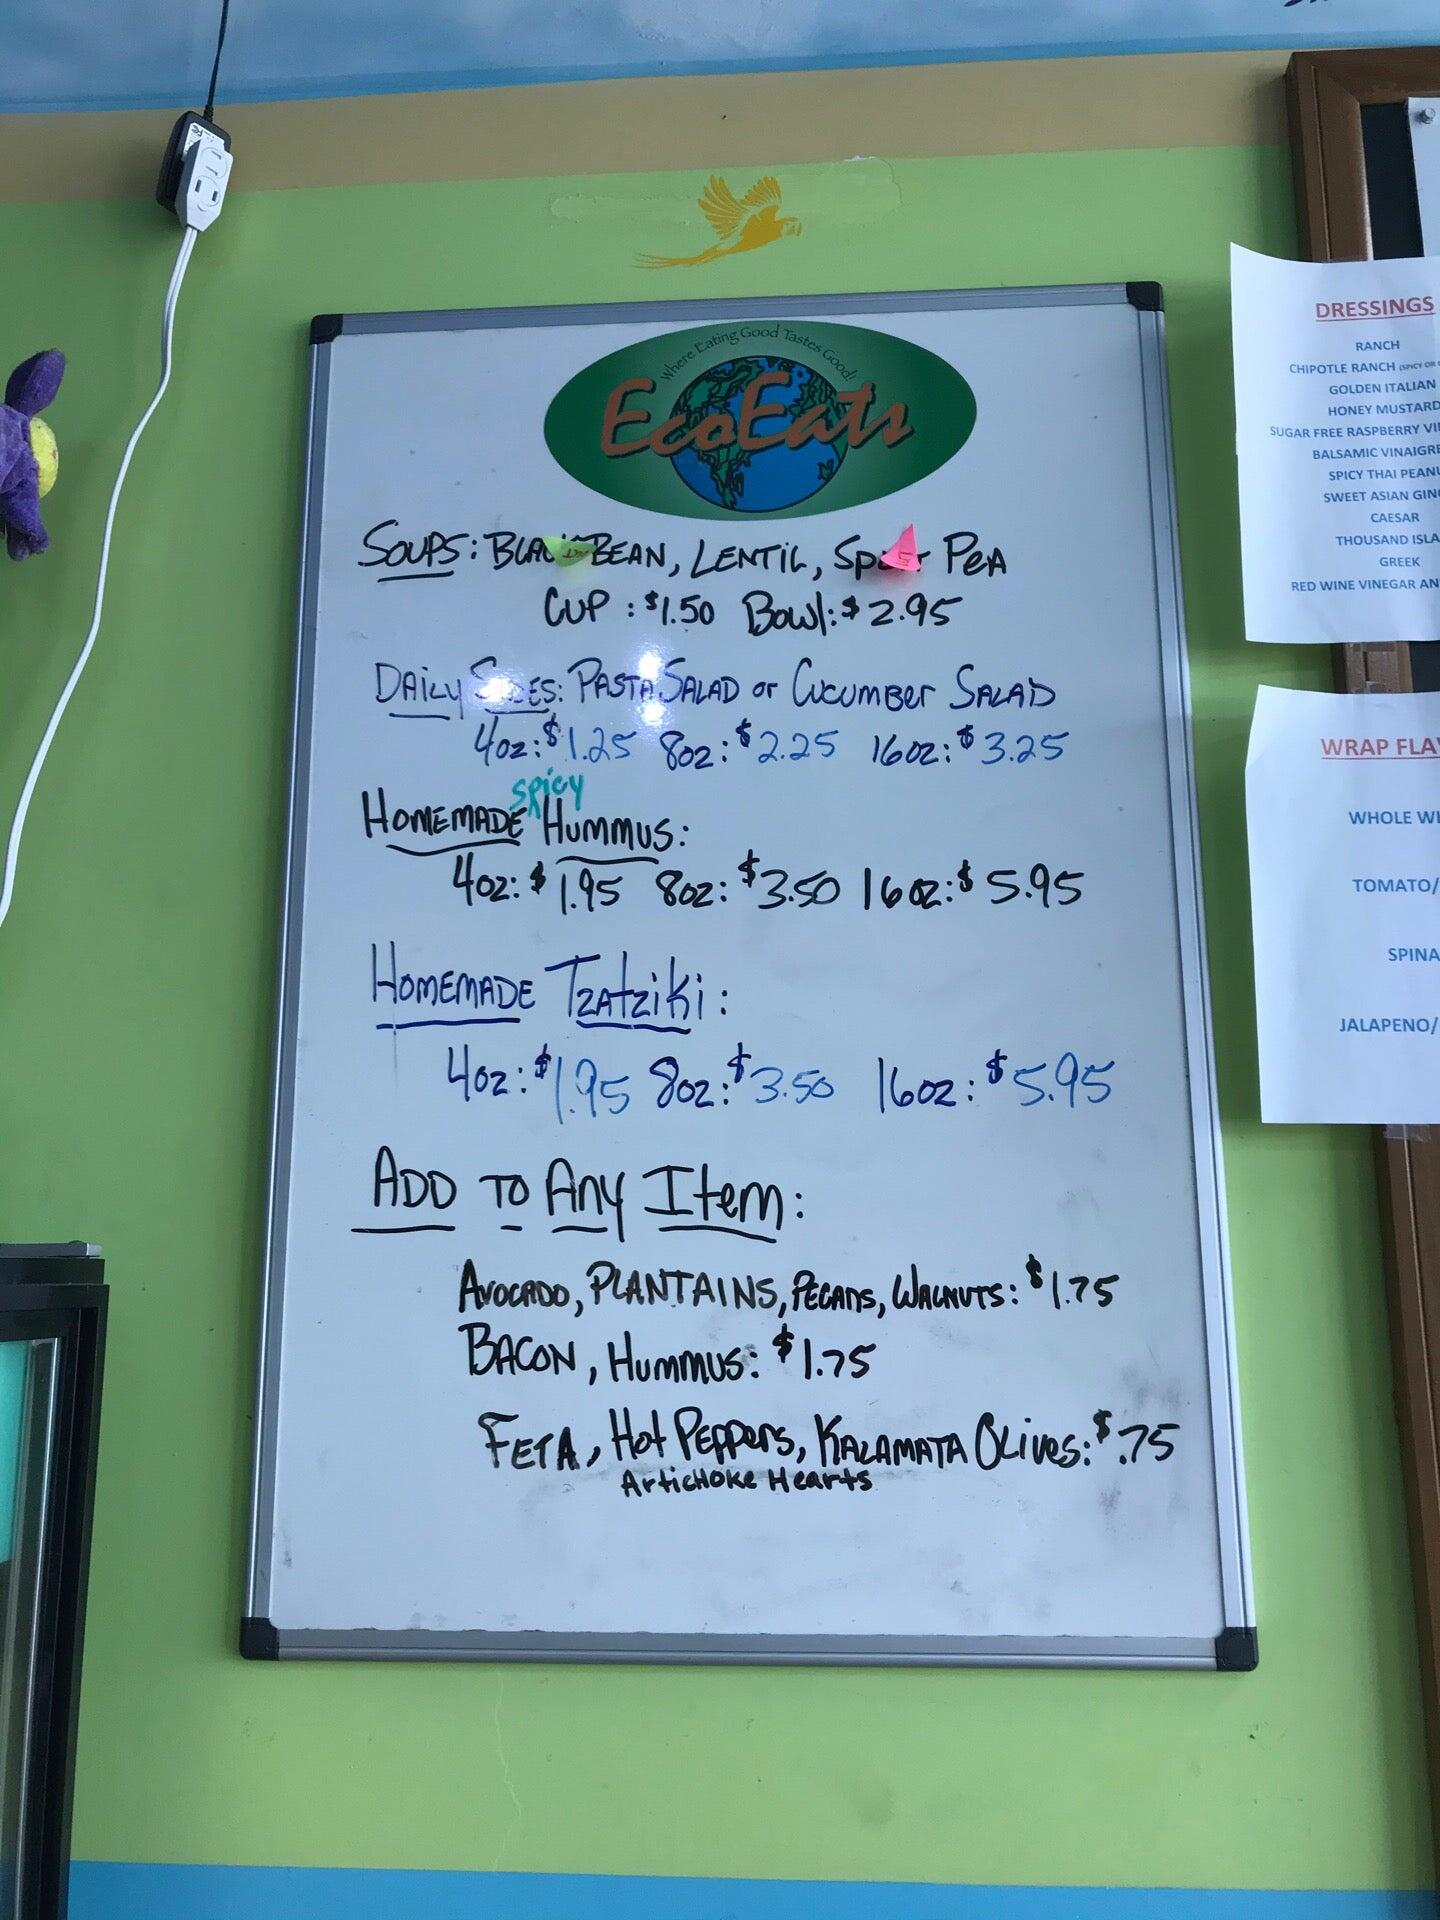 Where Eating Good Tastes Good!
EcoEats
SOUPS: BLACK BEAN, LENTIL, SPLIT PEA
CUP: $1.50 BOWL: $2.95
DAILY SIDES: PASTA SALAD or CUCUMBER SALAD
4oz: $1.25 8oz: $2.25 16oz: $3.25
spicy
HOMEMADE HUMMUS:
4oz: $1.95 8oz: $3.50 16oz: $5.95
HOMEMADE TZATZIKI:
4oz: $1.95 8oz: $3.50 16oz: $5.95
ADD TO ANY ITEM:
AVOCADO, PLANTAINS, PECANS, WALNUTS: $1.75
BACON, HUMMUS: $1.75
FETA, HOT PEPPERS, KALAMATA OLIVES: $.75
ARTICHOKE HEARTS
DRESSINGS
RANCH
CHIPOTLE RANCH (SPICY OR
GOLDEN ITALIAN
HONEY MUSTARD
SUGAR FREE RASPBERRY
BALSAMIC
SPICY THAI
SWEET ASIAN
CAESAR
THOUSAND
GREEK
RED WINE VINEGAR
WRAP
WHOLE
TOMATO/
JALAPENO/